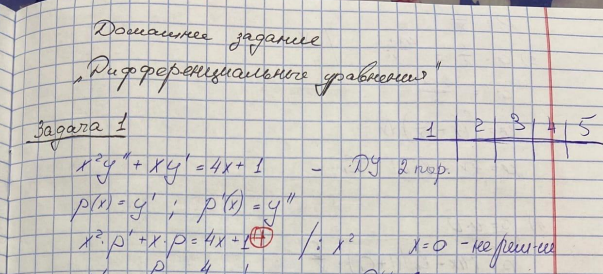 Домашнее задание
„Дифференциальные уравнения"
Задача 1
1 2 3 4 5
x²y" + xy' = 4x + 1 - ДУ 2 пор.
p(x) = y' ; p'(x) = y"
x²·p' + x·p = 4x + 1 /: x² x=0 - не реш-ие